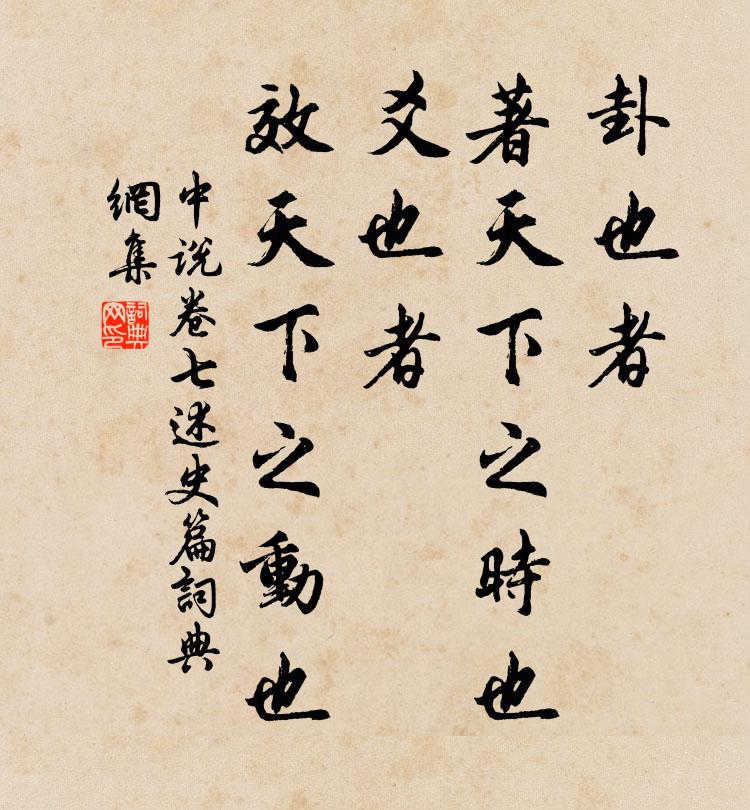 卦也者
著天下之時也
爻也者
效天下之動也
中说卷七述史篇詞典
網集
詞典
网印